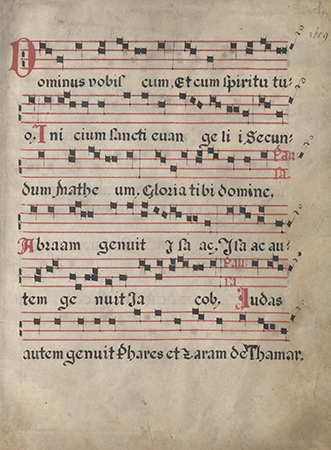 Dominus vobis cum, Et cum spiritu tu-
o. Ini cium sancti euan ge li i Secun-
Pau
sa
dum Mathe um. Gloria tibi domine,
Abraam genuit Isa ac. Isa ac au-
Pau
sa
tem ge nuit Ja cob, Iudas
autem genuit Phares et Zaram de Thamar.